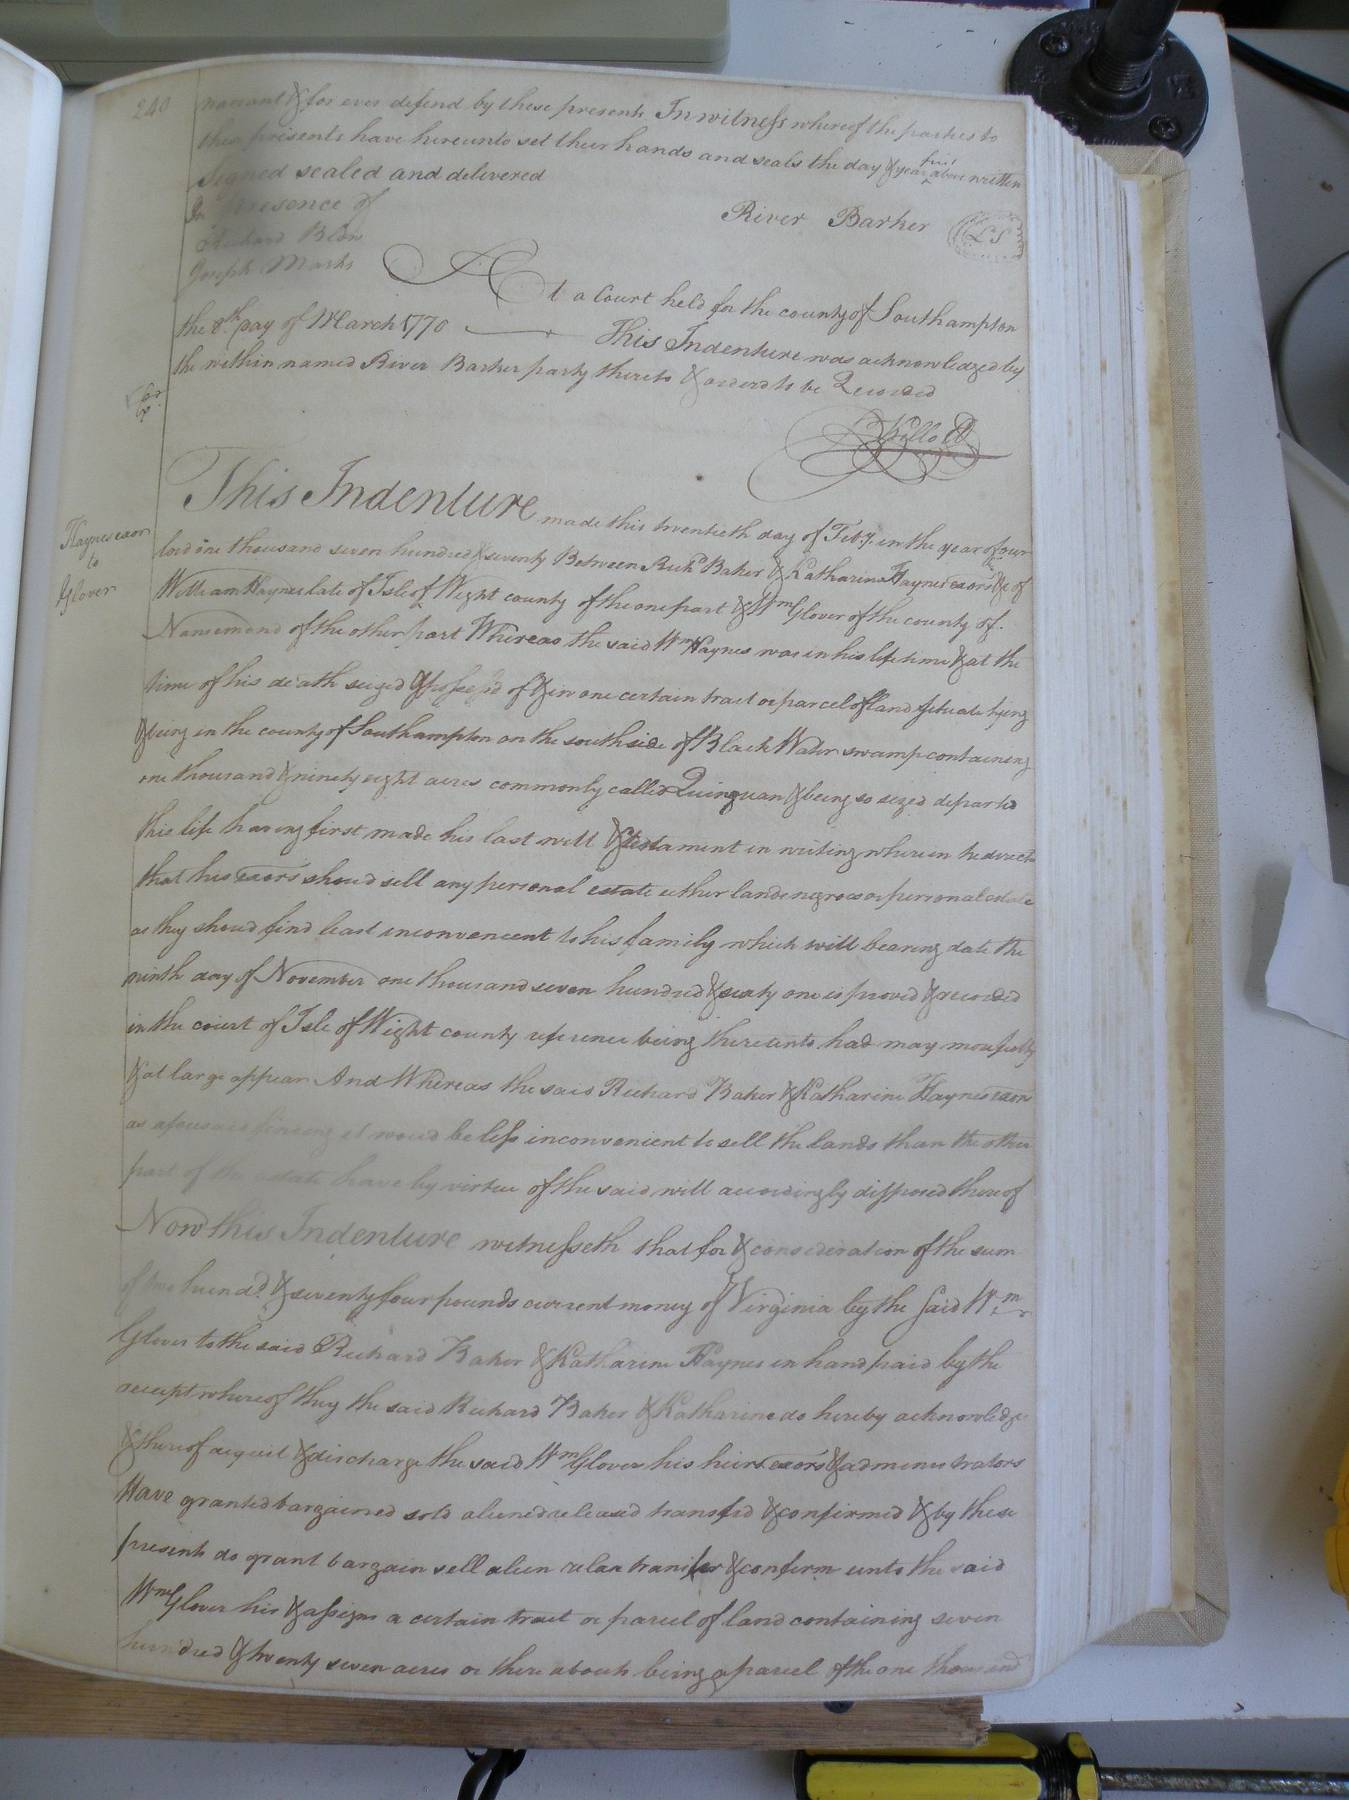 240
warrant & for ever defend by these presents In witness whereof the parties to
these presents have hereunto set their hands and seals the day & year first above written
Signed sealed and delivered
In presence of
River Barker LS
Richard Blow
Joseph Marks
At a Court held for the county of Southampton
the 8th day of March 1770 This Indenture was acknowledged by
the within named River Barker party thereto & orderd to be Recorded
Exd
This Indenture made this twentieth day of Feby. in the year of our
Haynes exors
to
Glover
lord one thousand seven hundred & seventy Between Richd Baker & Katharine Haynes exors &c of
William Haynes late of Isle of Wight county of the one part & Wm Glover of the county of
Nansemond of the other part Whereas the said Wm Haynes was in his life time & at the
time of his death seized & possess'd of & in one certain tract or parcel of land situate lying
& being in the county of Southampton on the south side of Black Water swamp containing
one thousand & ninety eight acres commonly called Quinquan & being so seized departed
this life having first made his last will & testament in writing wherein he directs
that his exors shoud sell any personal estate either lands negroes or personal estate
as they shoud find least inconvenient to his family which will bearing date the
ninth day of November one thousand seven hundred & sixty one is proved & recorded
in the court of Isle of Wight county reference being thereunto had may more fully
& at large appear And Whereas the said Richard Baker & Katharine Haynes exors
as aforesaid finding it woud be less inconvenient to sell the lands than the other
part of the estate have by virtue of the said will accordingly disposed thereof
Now this Indenture witnesseth that for & consideration of the sum
of two hundd. & seventy four pounds current money of Virginia by the said Wm
Glover to the said Richard Baker & Katharine Haynes in hand paid by the
receipt whereof they the said Richard Baker & Katharine do hereby acknowledge
& thereof acquit & discharge the said Wm Glover his heirs exors & administrators
Have granted bargained sold aliened released transferd & confirmed & by these
presents do grant bargain sell alien release transfer & confirm unto the said
Wm Glover his & assigns a certain tract or parcel of land containing seven
hundred & twenty seven acres or there abouts being a parcel of the one thousand